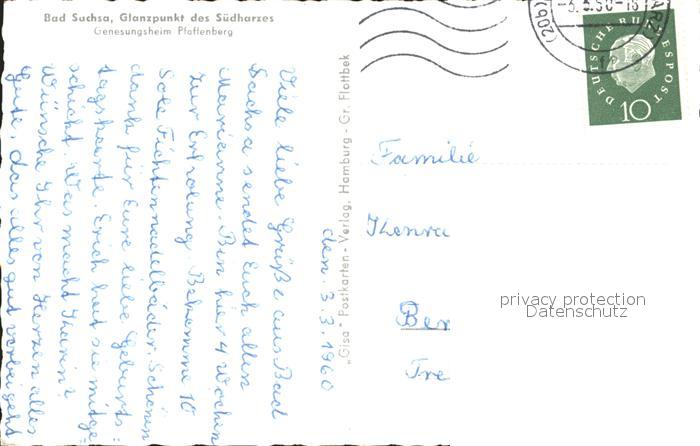 Bad Suchsa, Glanzpunkt des Südharzes
Genesungsheim Pfaffenberg
den. 3.3.1960
Viele liebe Grüße aus Bad
Sachsa sendet Euch allen
Marianne. Bin hier 4 Wochen
zur Erholung. Bekomme 10
Sole Fichtennadelbäder. Schönen
dank für Eure liebe Geburts=
tagskarte. Erich hat sie mitge=
schickt. Was macht Karin?
Wünsche Ihr von Herzen alles
Gute, das alles gut vorbei geht
„Gisa" Postkarten-Verlag, Hamburg - Gr. Flottbek
DEUTSCHE BUNDESPOST
10
(20b)
Familie
Ber
privacy protection
Datenschutz